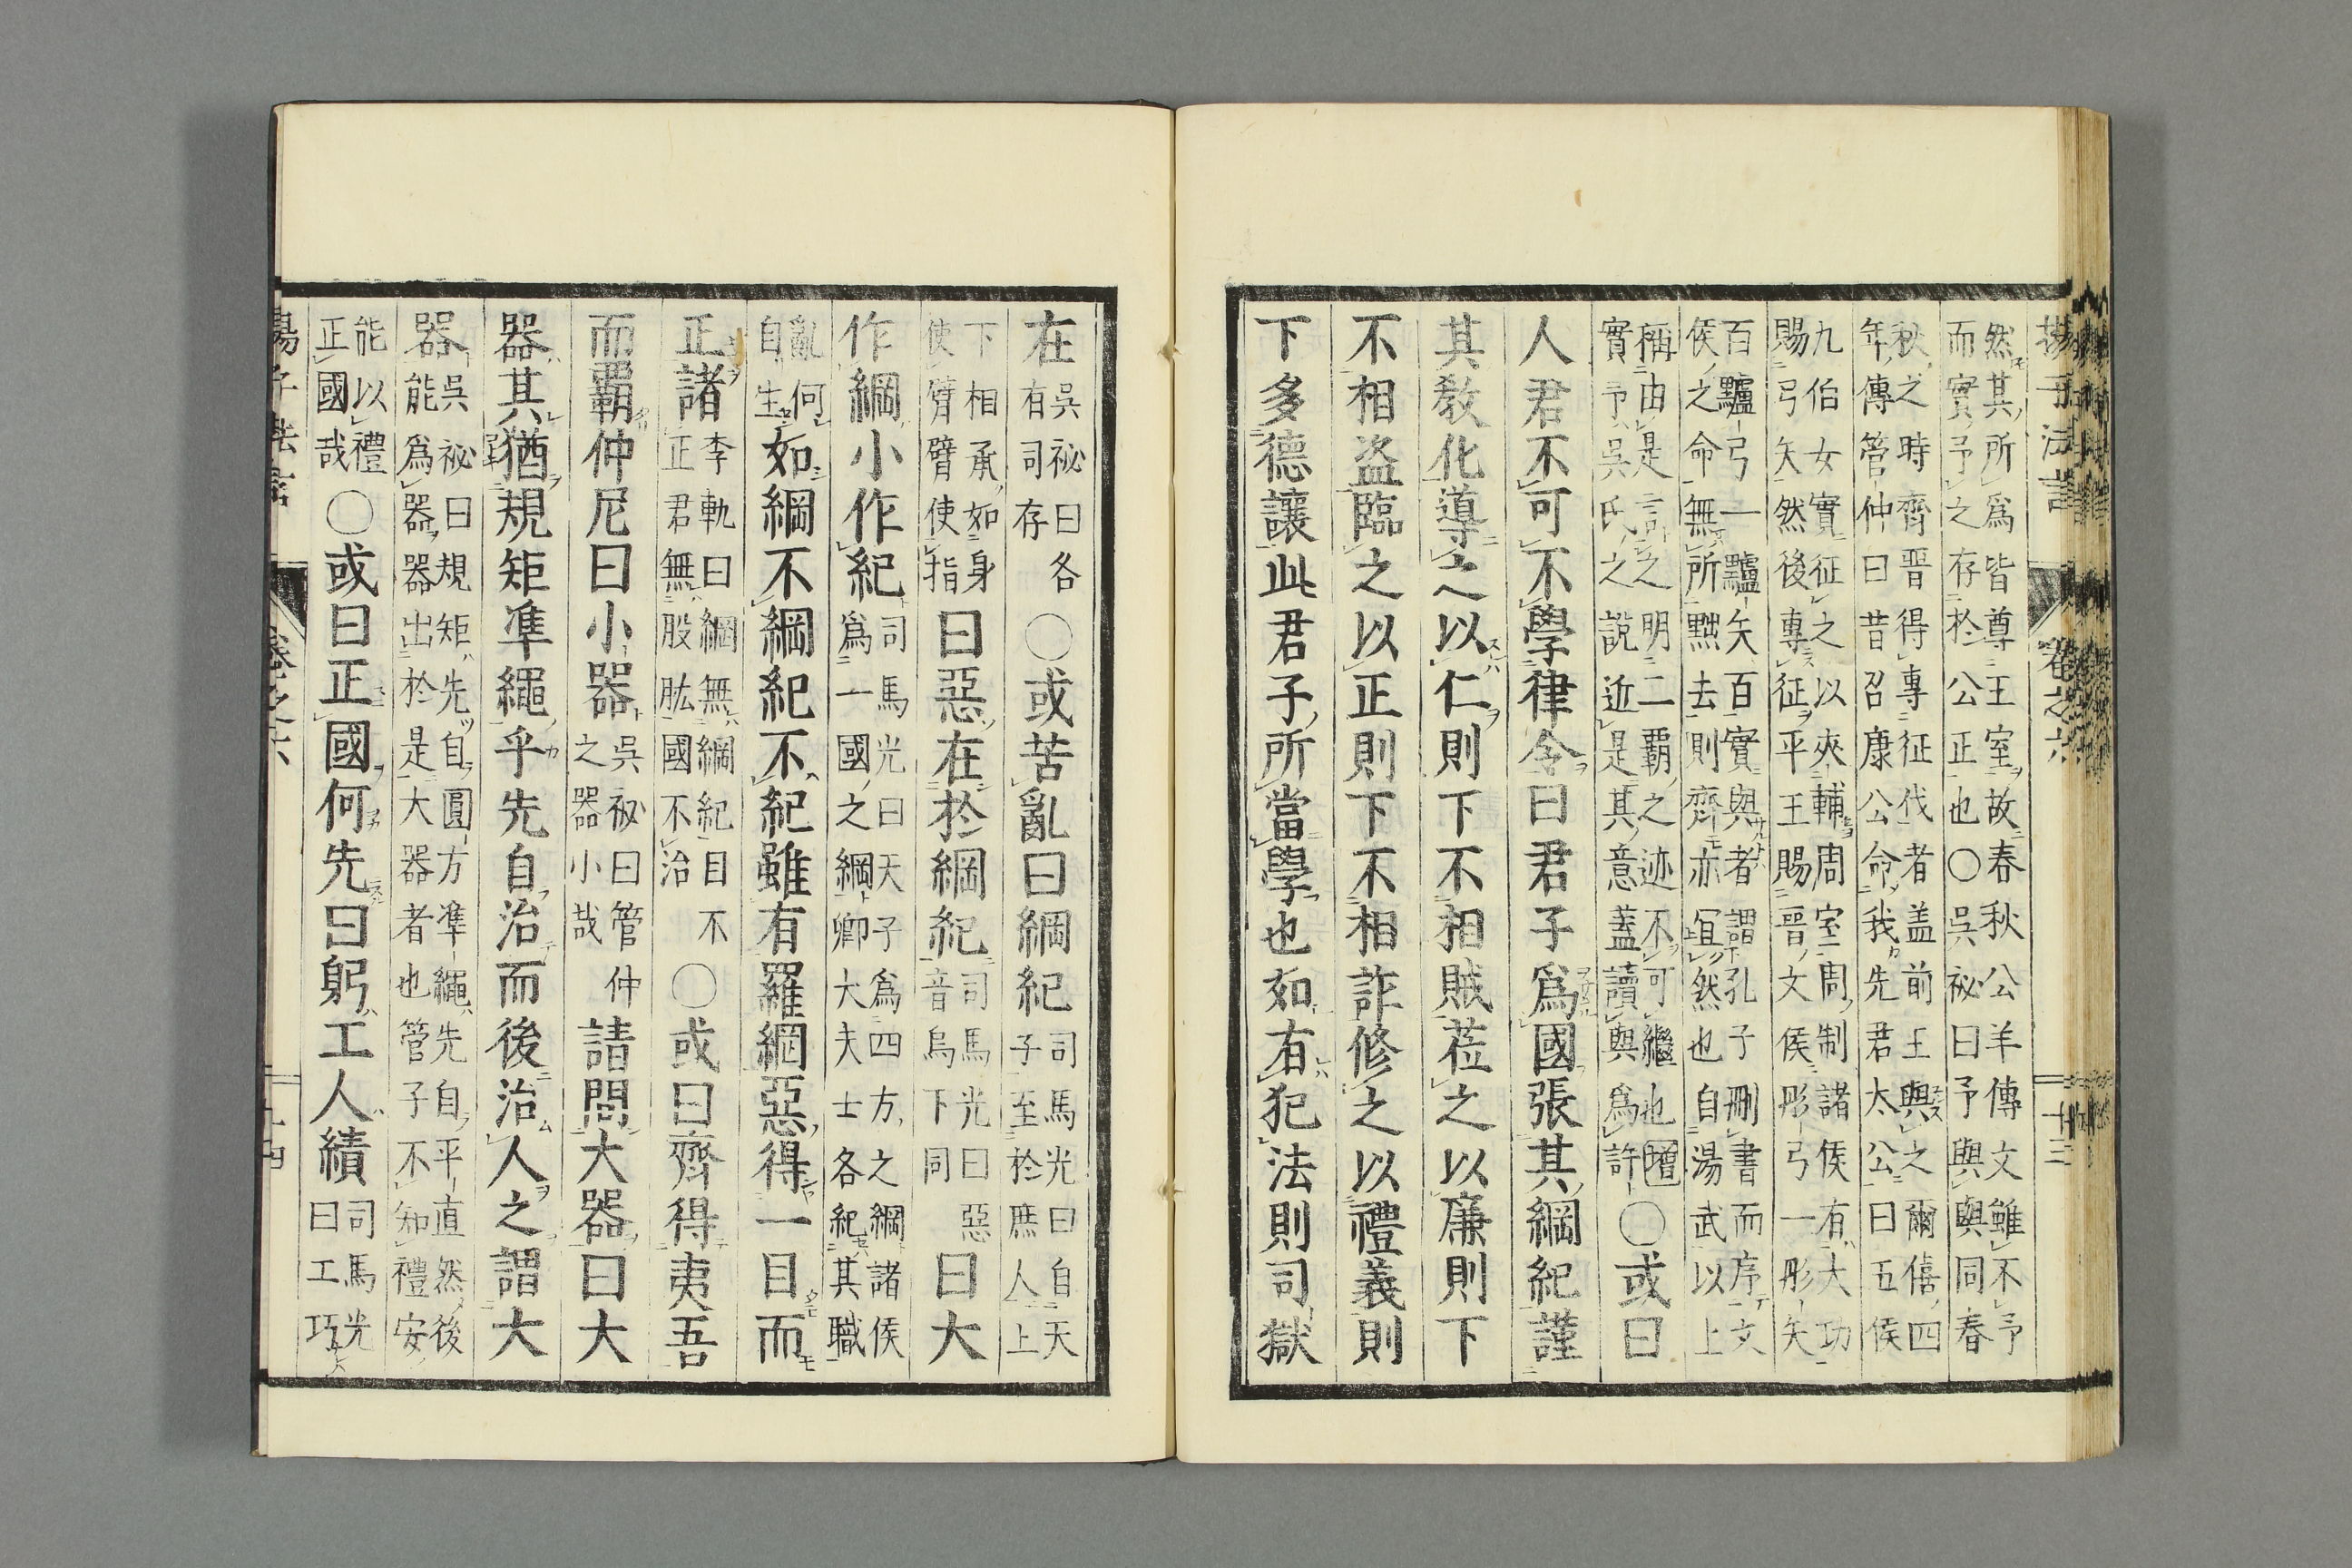 揚子法言 卷之六 十三
然其所爲皆尊王室故春秋公羊傳文雖不予
而實予之存於公正也○吳祕曰予與與同春
秋之時齊晉得專征伐者盖前王與之爾僖四
年傳管仲曰昔召康公命我先君太公曰五侯
九伯女實征之以夾輔周室周制諸侯有大功
賜弓矢然後專征平王賜晉文侯彤弓一彤矢
百玈弓一玈矢百實與者謂孔子刪書而序文
侯之命無所黜去則齊亦宜然也自湯武以上
稱由是言之明二覇之迹不可繼也
實予吳氏之說近是其意蓋讀與爲許○或曰
人君不可不學律令曰君子爲國張其綱紀謹
其敎化導之以仁則下不相賊莅之以廉則下
不相盗臨之以正則下不相詐修之以禮義則
下多德讓此君子所當學也如有犯法則司獄
在
吳祕曰各
有司存
○或苦亂曰綱紀
司馬光曰自天
子至於庶人上
下相承如身
使臂臂使指
曰惡在於綱紀
司馬光曰惡
音烏下同
曰大
作綱小作紀
司馬光曰天子爲四方之綱諸侯
爲一國之綱卿大夫士各紀其職
亂何
自生
如綱不綱紀不紀雖有羅網惡得一目而
正諸
李軌曰綱無綱紀目不
正君無股肱國不治
○或曰齊得夷吾
而覇仲尼曰小器
吳祕曰管仲
之器小哉
請問大器曰大
器其猶規矩準繩乎先自治而後治人之謂大
器
吳祕曰規矩先自圓方準繩先自平直然後
能爲器器出於是大器者也管子不知禮安
能以禮
正國哉
○或曰正國何先曰躬工人績
司馬光
曰工巧